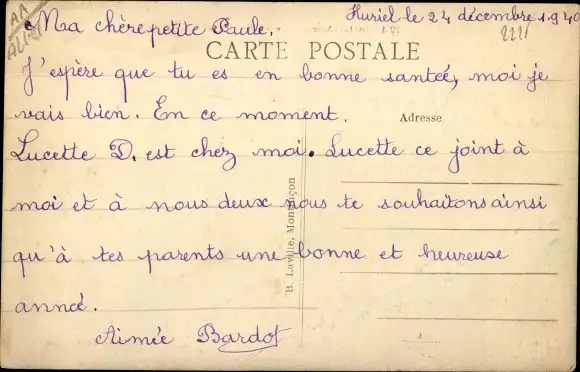 AA
Huriel le 24 décembre 1940
Ma chère petite Paule,
CARTE POSTALE
J'espère que tu es en bonne santée, moi je
vais bien. En ce moment.
Adresse
Lucette D. est chez moi. Lucette ce joint à
moi et à nous deux nous te souhaitons ainsi
qu'à tes parents une bonne et heureuse
année.
Aimée Bardot
B. Laville, Montluçon